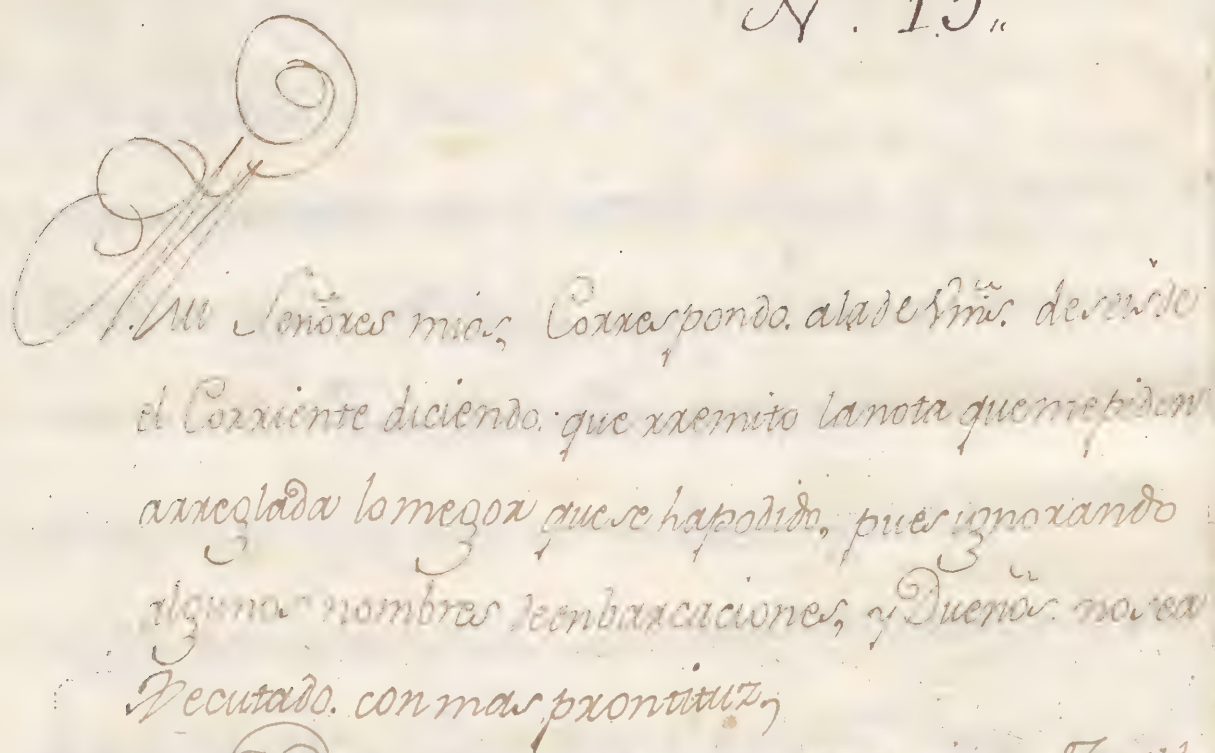 N. 15,,
Mui Señores mios, Correspondo. alade Vms. deseisde
el Corriente diciendo. que rremito lanota quemepiden
arreglada lomegor quese hapodido, pues ignorando
algunos nombres deenbarcaciones, y Dueños. nosea
Yecutado. con mas prontituz,